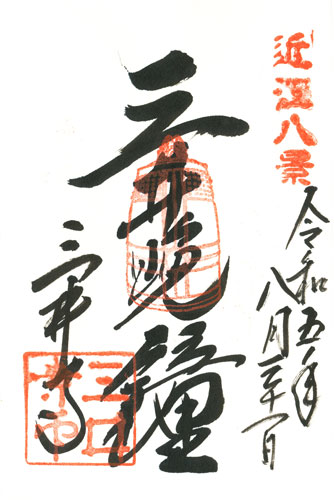 近江八景
令和五年
八月二十一日
三井晩鐘
三井寺